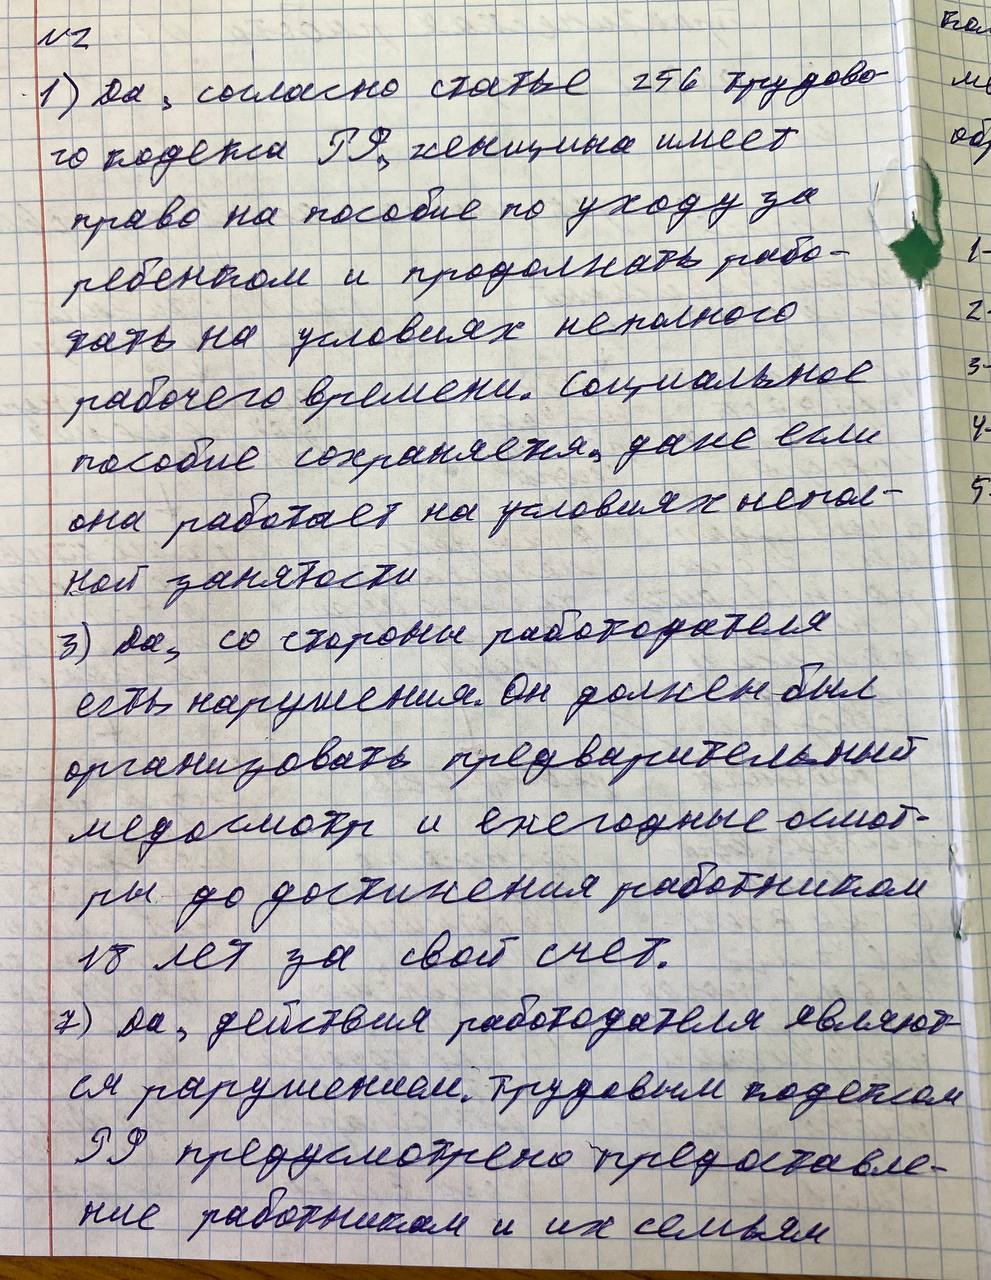 №2
1) Да, согласно статье 256 трудово-
го кодекса РФ, женщина имеет
право на пособие по уходу за
ребенком и продолжать рабо-
тать на условиях неполного
рабочего времени. Социальное
пособие сохраняется, даже если
она работает на условиях непол-
ной занятости
3) Да, со стороны работодателя
есть нарушения. Он должен был
организовать предварительный
медосмотр и ежегодные осмот-
ры до достижения работником
18 лет за свой счет.
7) Да, действия работодателя являют-
ся нарушением. Трудовым кодексом
РФ предусмотрено предоставле-
ние работникам и их семьям
1-
2-
3-
4-
5-